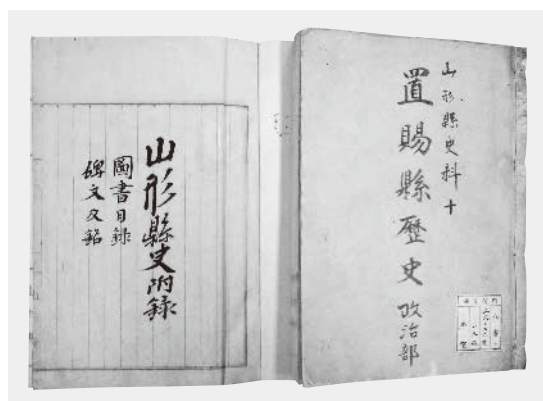 山形縣史料 十
置賜縣歴史 政治部
山形縣史附録
圖書目録
碑文及銘